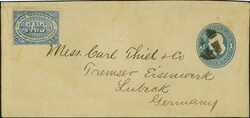 Mess. Carl Thiel & Co
Tremser Eisenwerk
Lubeck
Germany